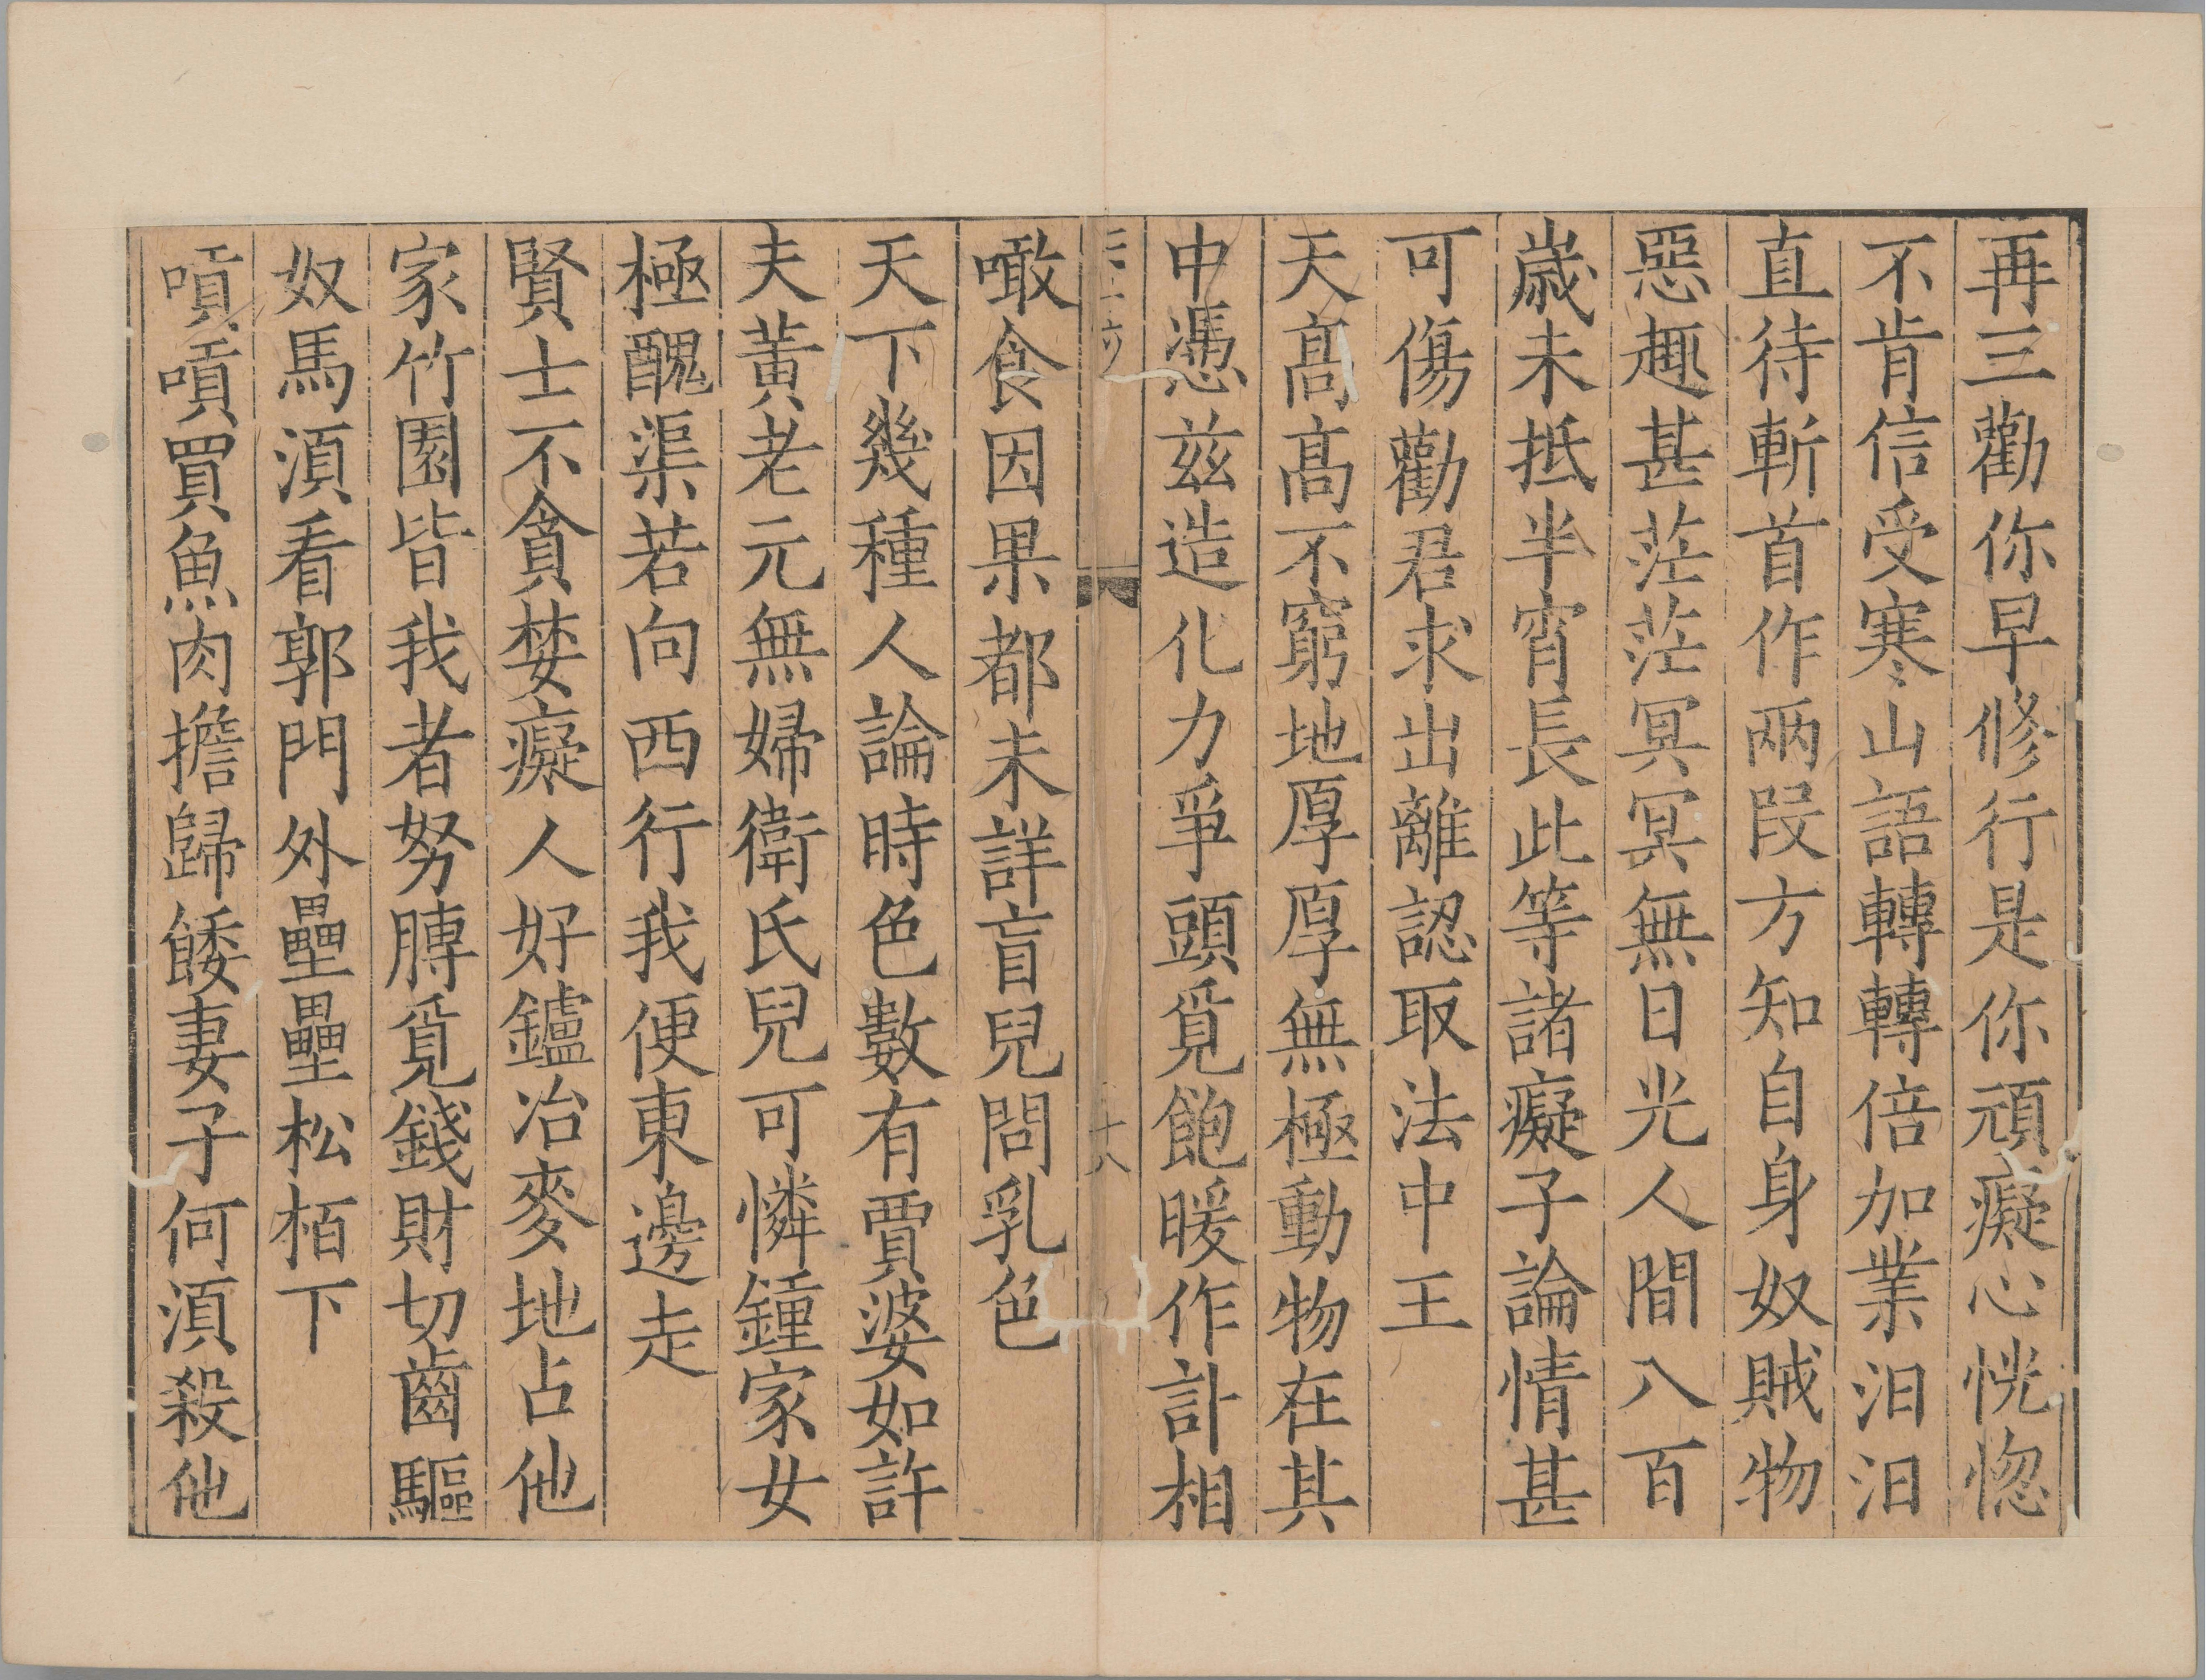 再三勸你早修行是你頑癡心恍惚
不肯信受寒山語轉轉倍加業汨汨
直待斬首作兩段方知自身奴賊物
惡趣甚茫茫冥冥無日光人間八百
歲未抵半宵長此等諸癡子論情甚
可傷勸君求出離認取法中王
天高高不窮地厚厚無極動物在其
中憑茲造化力爭頭覓飽暖作計相
噉食因果都未詳盲兒問乳色
天下幾種人論時色數有賈婆如許
夫黃老元無婦衛氏兒可憐鍾家女
極醜渠若向西行我便東邊走
賢士不貪婪癡人好鑪冶麥地占他
家竹園皆我者努膊覓錢財切齒驅
奴馬湏看郭門外壘壘松栢下
嘖嘖買魚肉擔歸餧妻子何湏殺他